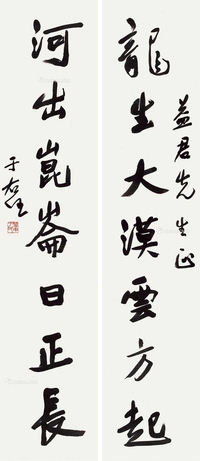 益君先生正
龍生大漠雲方起
河出崑崙日正長
于右任